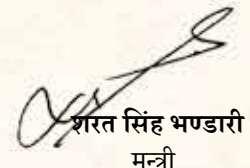 शरत सिंह भण्डारी
मन्त्री